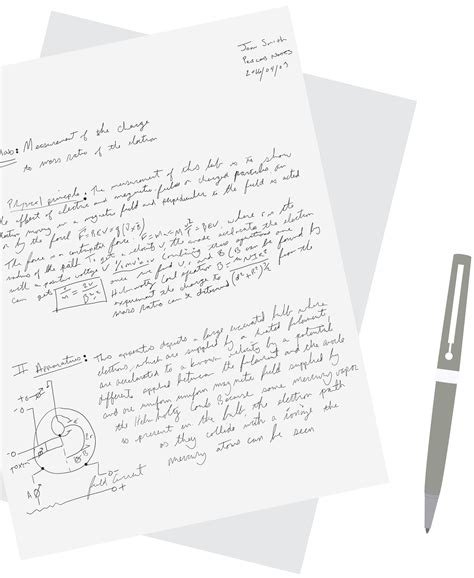 Jane Smith
Process Notes
2016/04/09
Measurement of the charge
to mass ratio of the electron
Physical principle: The measurement of this lab is to show
the effect of electric and magnetic fields on charged particles. An
electron moving in a magnetic field and perpendicular to the field is acted
on by the force
The force is a centripetal force, where r is the
radius of the path. To get a velocity V, the anode accelerates the electron
with a positive voltage V. Combining these equations one
can get I/M = 2V/B²r²
once we find V, r, and B (B can be found by
Helmholtz coil equation from the
experiment the charge to
mass ratio can be determined
II Apparatus: This apparatus depicts a large evacuated bulb where
electrons, which are supplied by a heated filament,
are accelerated to a known velocity by a potential
difference applied between the filament and the anode
and are uniform magnetic field supplied by
the Helmholtz Coils. Because some mercury vapor
is present in the bulb, the electron path
as they collide with a ionize the
mercury atoms can be seen
field current